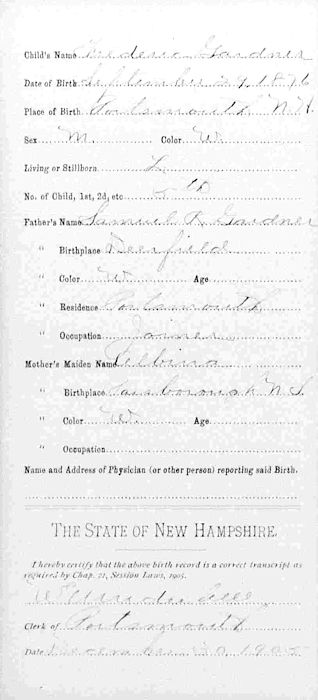 Child's Name Frederic Gardner
Date of Birth September 29 1876
Place of Birth Portsmouth N.H.
Sex M. Color W.
Living or Stillborn L
No. of Child, 1st, 2d, etc 5th
Father's Name Samuel R Gardner
" Birthplace Deerfield
" Color W Age
" Residence Portsmouth
" Occupation Joiner
Mother's Maiden Name Selbina
" Birthplace N.S.
" Color W. Age
" Occupation
Name and Address of Physician (or other person) reporting said Birth.
THE STATE OF NEW HAMPSHIRE.
I hereby certify that the above birth record is a correct transcript as
required by Chap. 21, Session Laws, 1905.
Clerk of Portsmouth
Date December 30, 1905